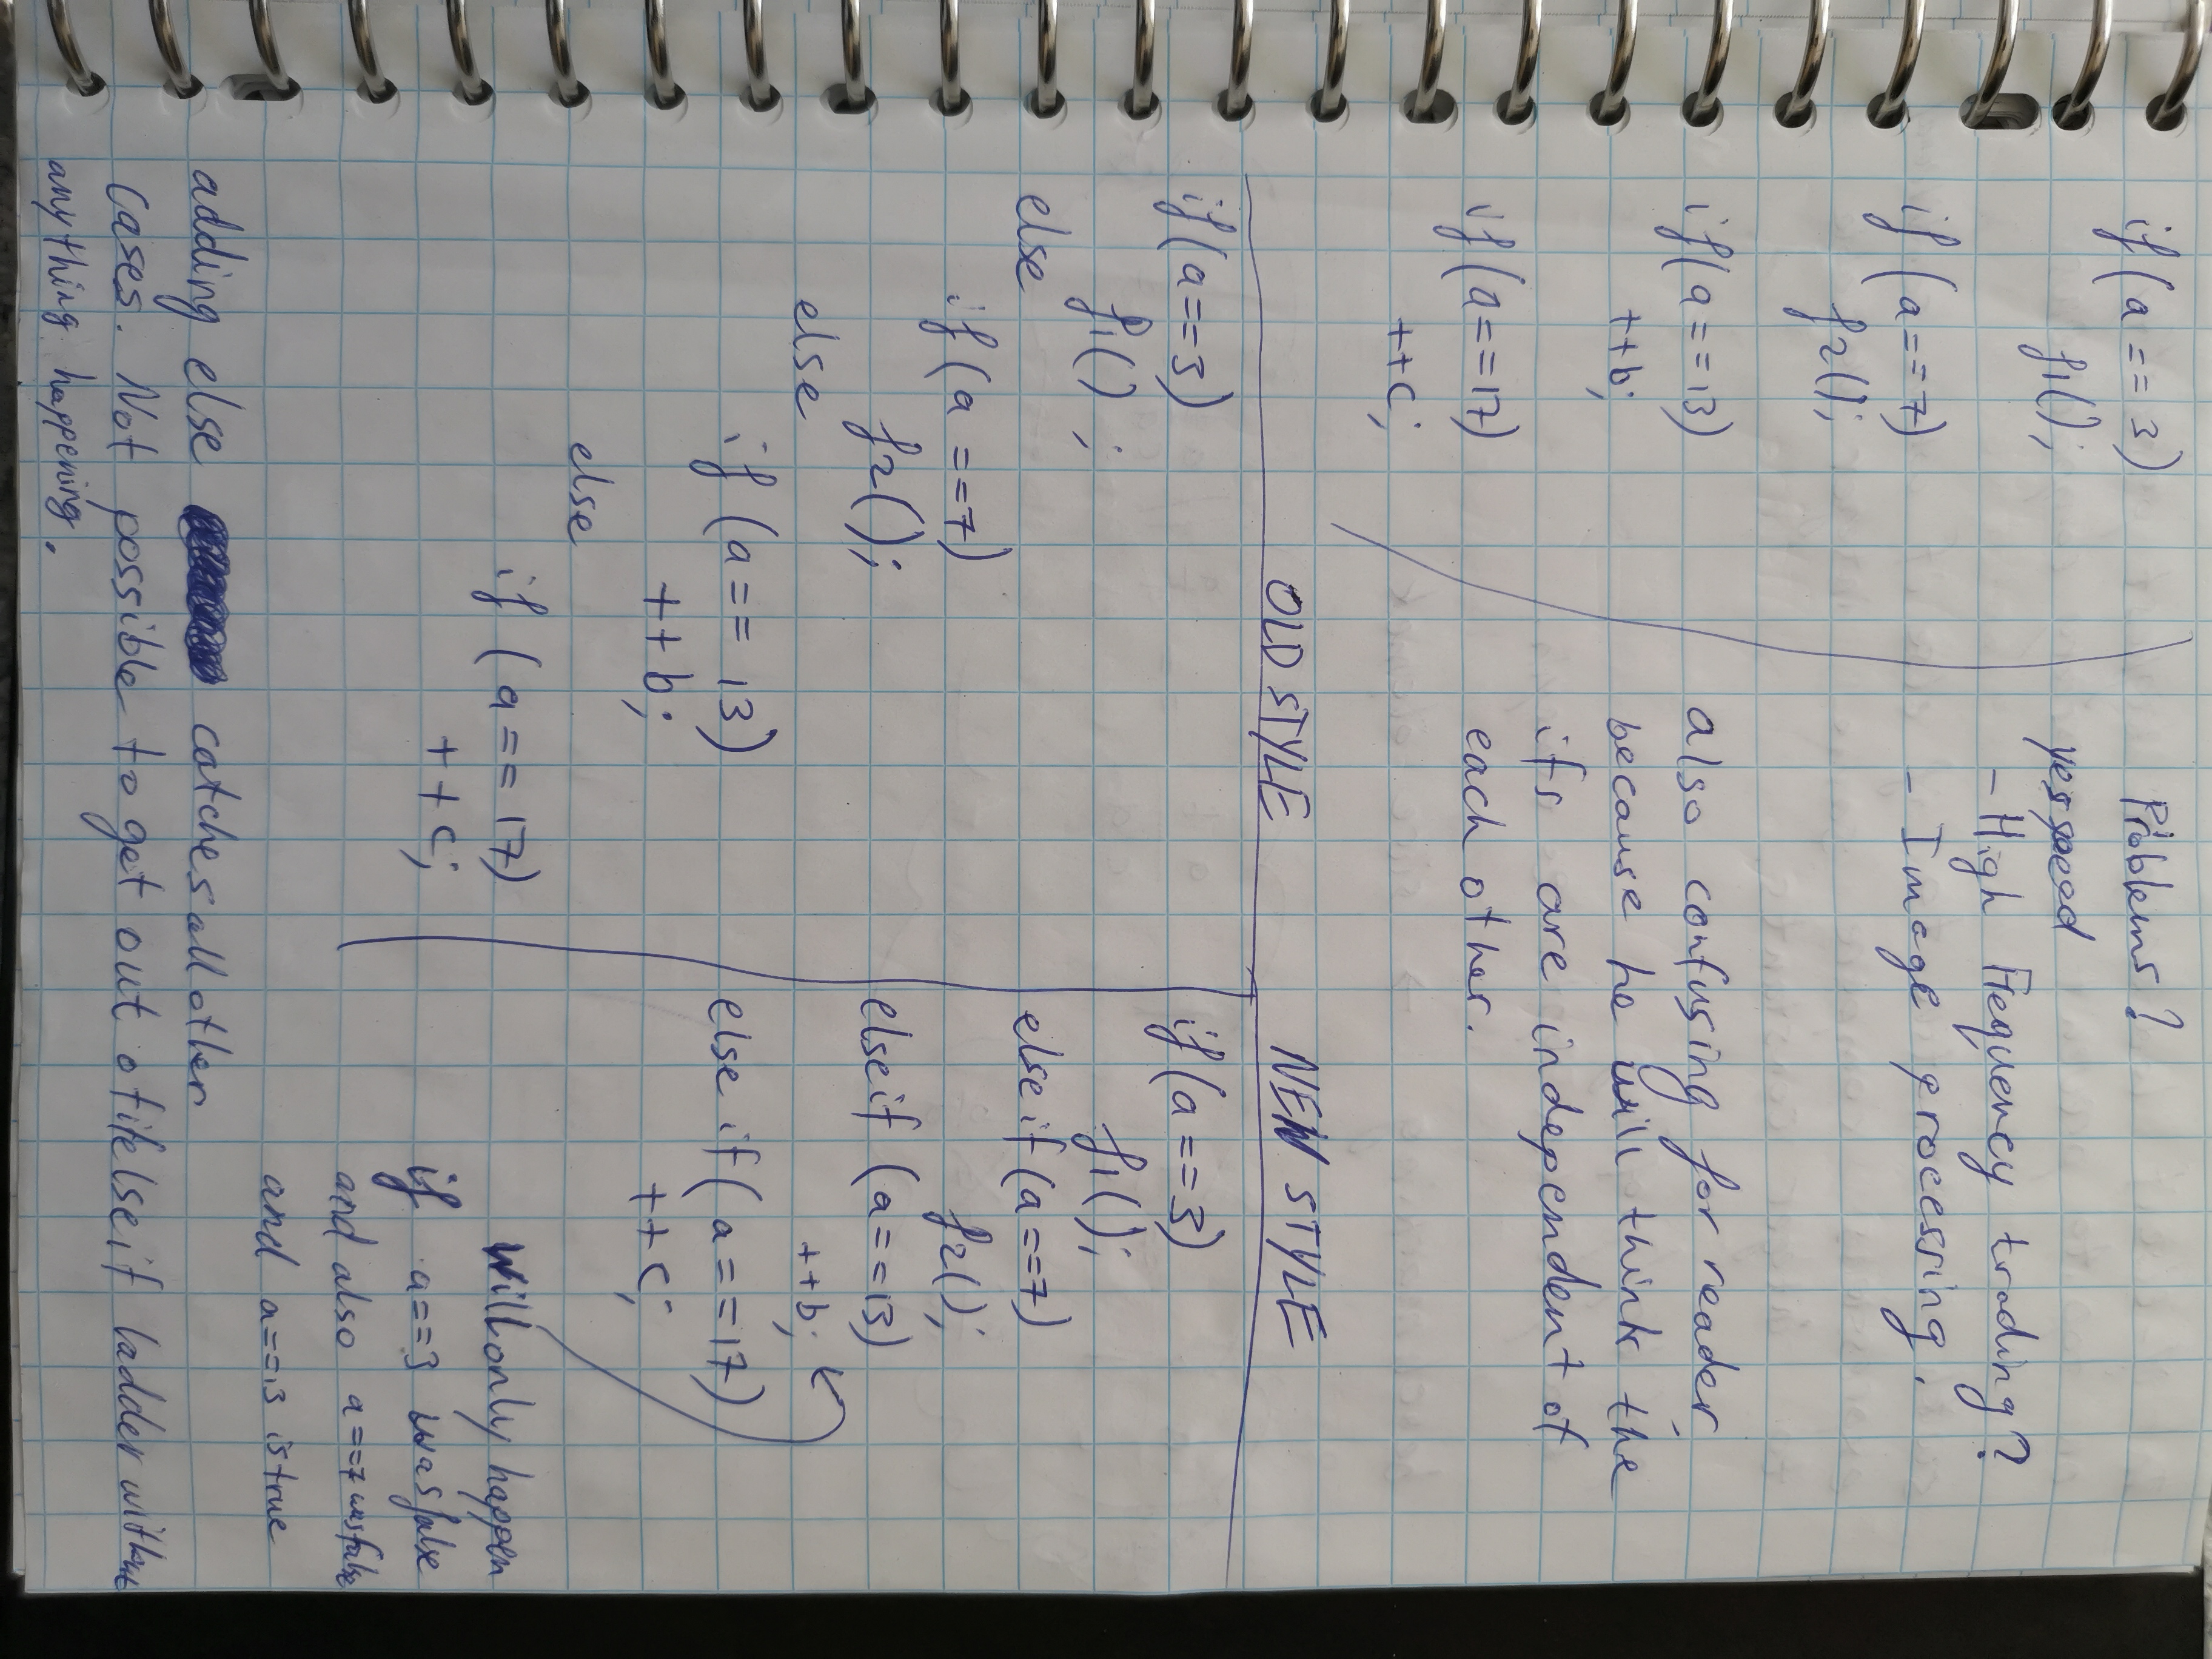 if (a == 3)
f1();
if (a==7)
f2();
if(a==13)
++b;
if(a==17)
++c;
Problems?
yes speed
- High Frequency trading?
- Image processing.
also confusing for reader,
because he will think the
ifs are independent of
each other.
OLD STYLE
if(a==3)
f1() ;
else
if(a ==7)
f2();
else
if (a== 13)
++b;
else
if (a== 17)
++c;
NEW STYLE
if(a ==3)
f1();
else if(a ==7)
f2();
else if (a==13)
++b;
else if( a==17)
++c;
Will only happen
if a==3 was false
and also a==7 was false
and a==13 is true
adding else catches all other
cases. Not possible to get out of if else if ladder without
anything happening.